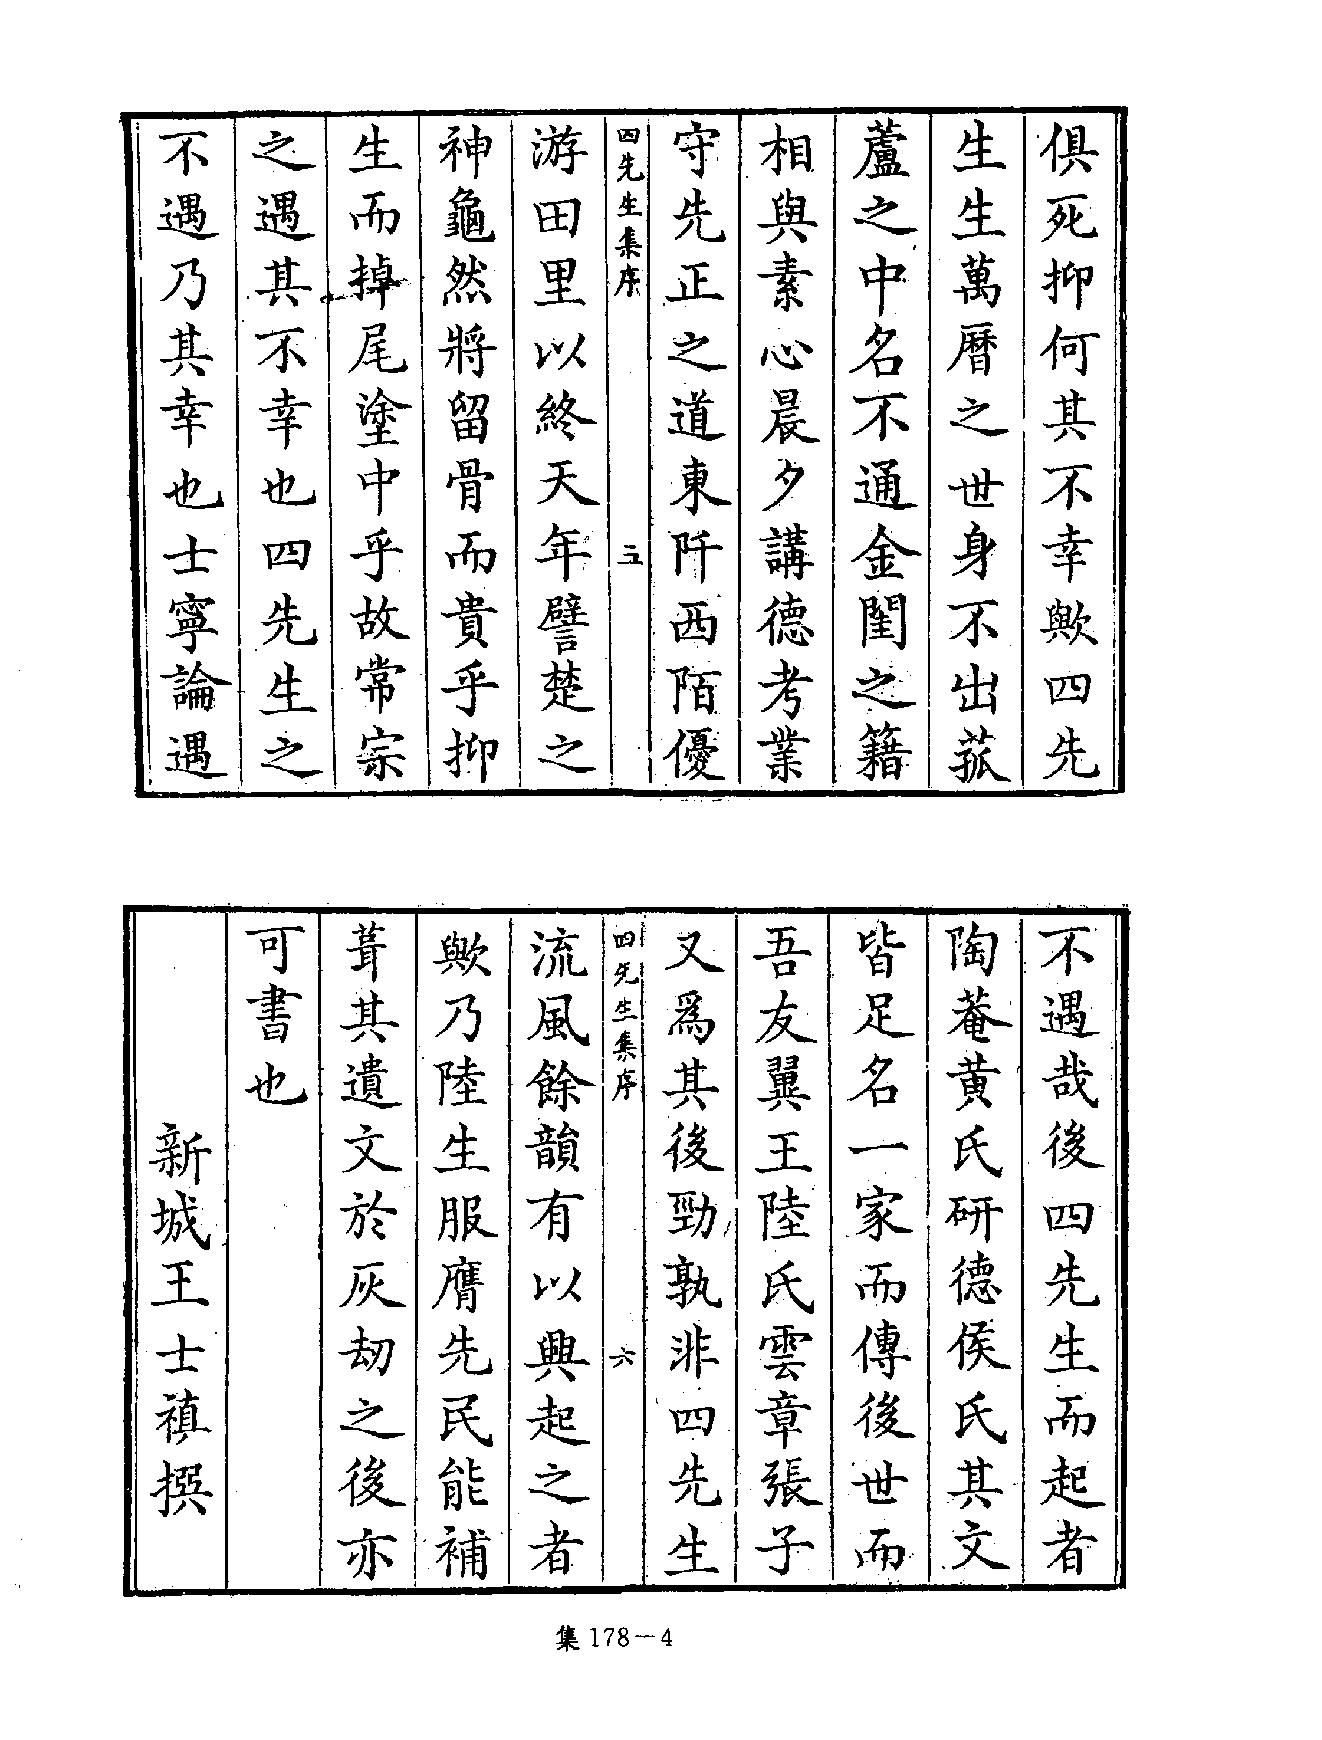 俱死抑何其不幸歟四先
生生萬曆之世身不出菰
蘆之中名不通金閨之籍
相與素心晨夕講德考業
守先正之道東阡西陌優
四先生集序 五
游田里以終天年譬楚之
神龜然將留骨而貴乎抑
生而掉尾塗中乎故常宗
之遇其不幸也四先生之
不遇乃其幸也士寧論遇
不遇哉後四先生而起者
陶菴黄氏研德侯氏其文
皆足名一家而傳後世而
吾友翼王陸氏雲章張子
又爲其後勁孰非四先生
四先生集序 六
流風餘韻有以興起之者
歟乃陸生服膺先民能補
葺其遺文於灰劫之後亦
可書也
新城王士禛撰
集178－4